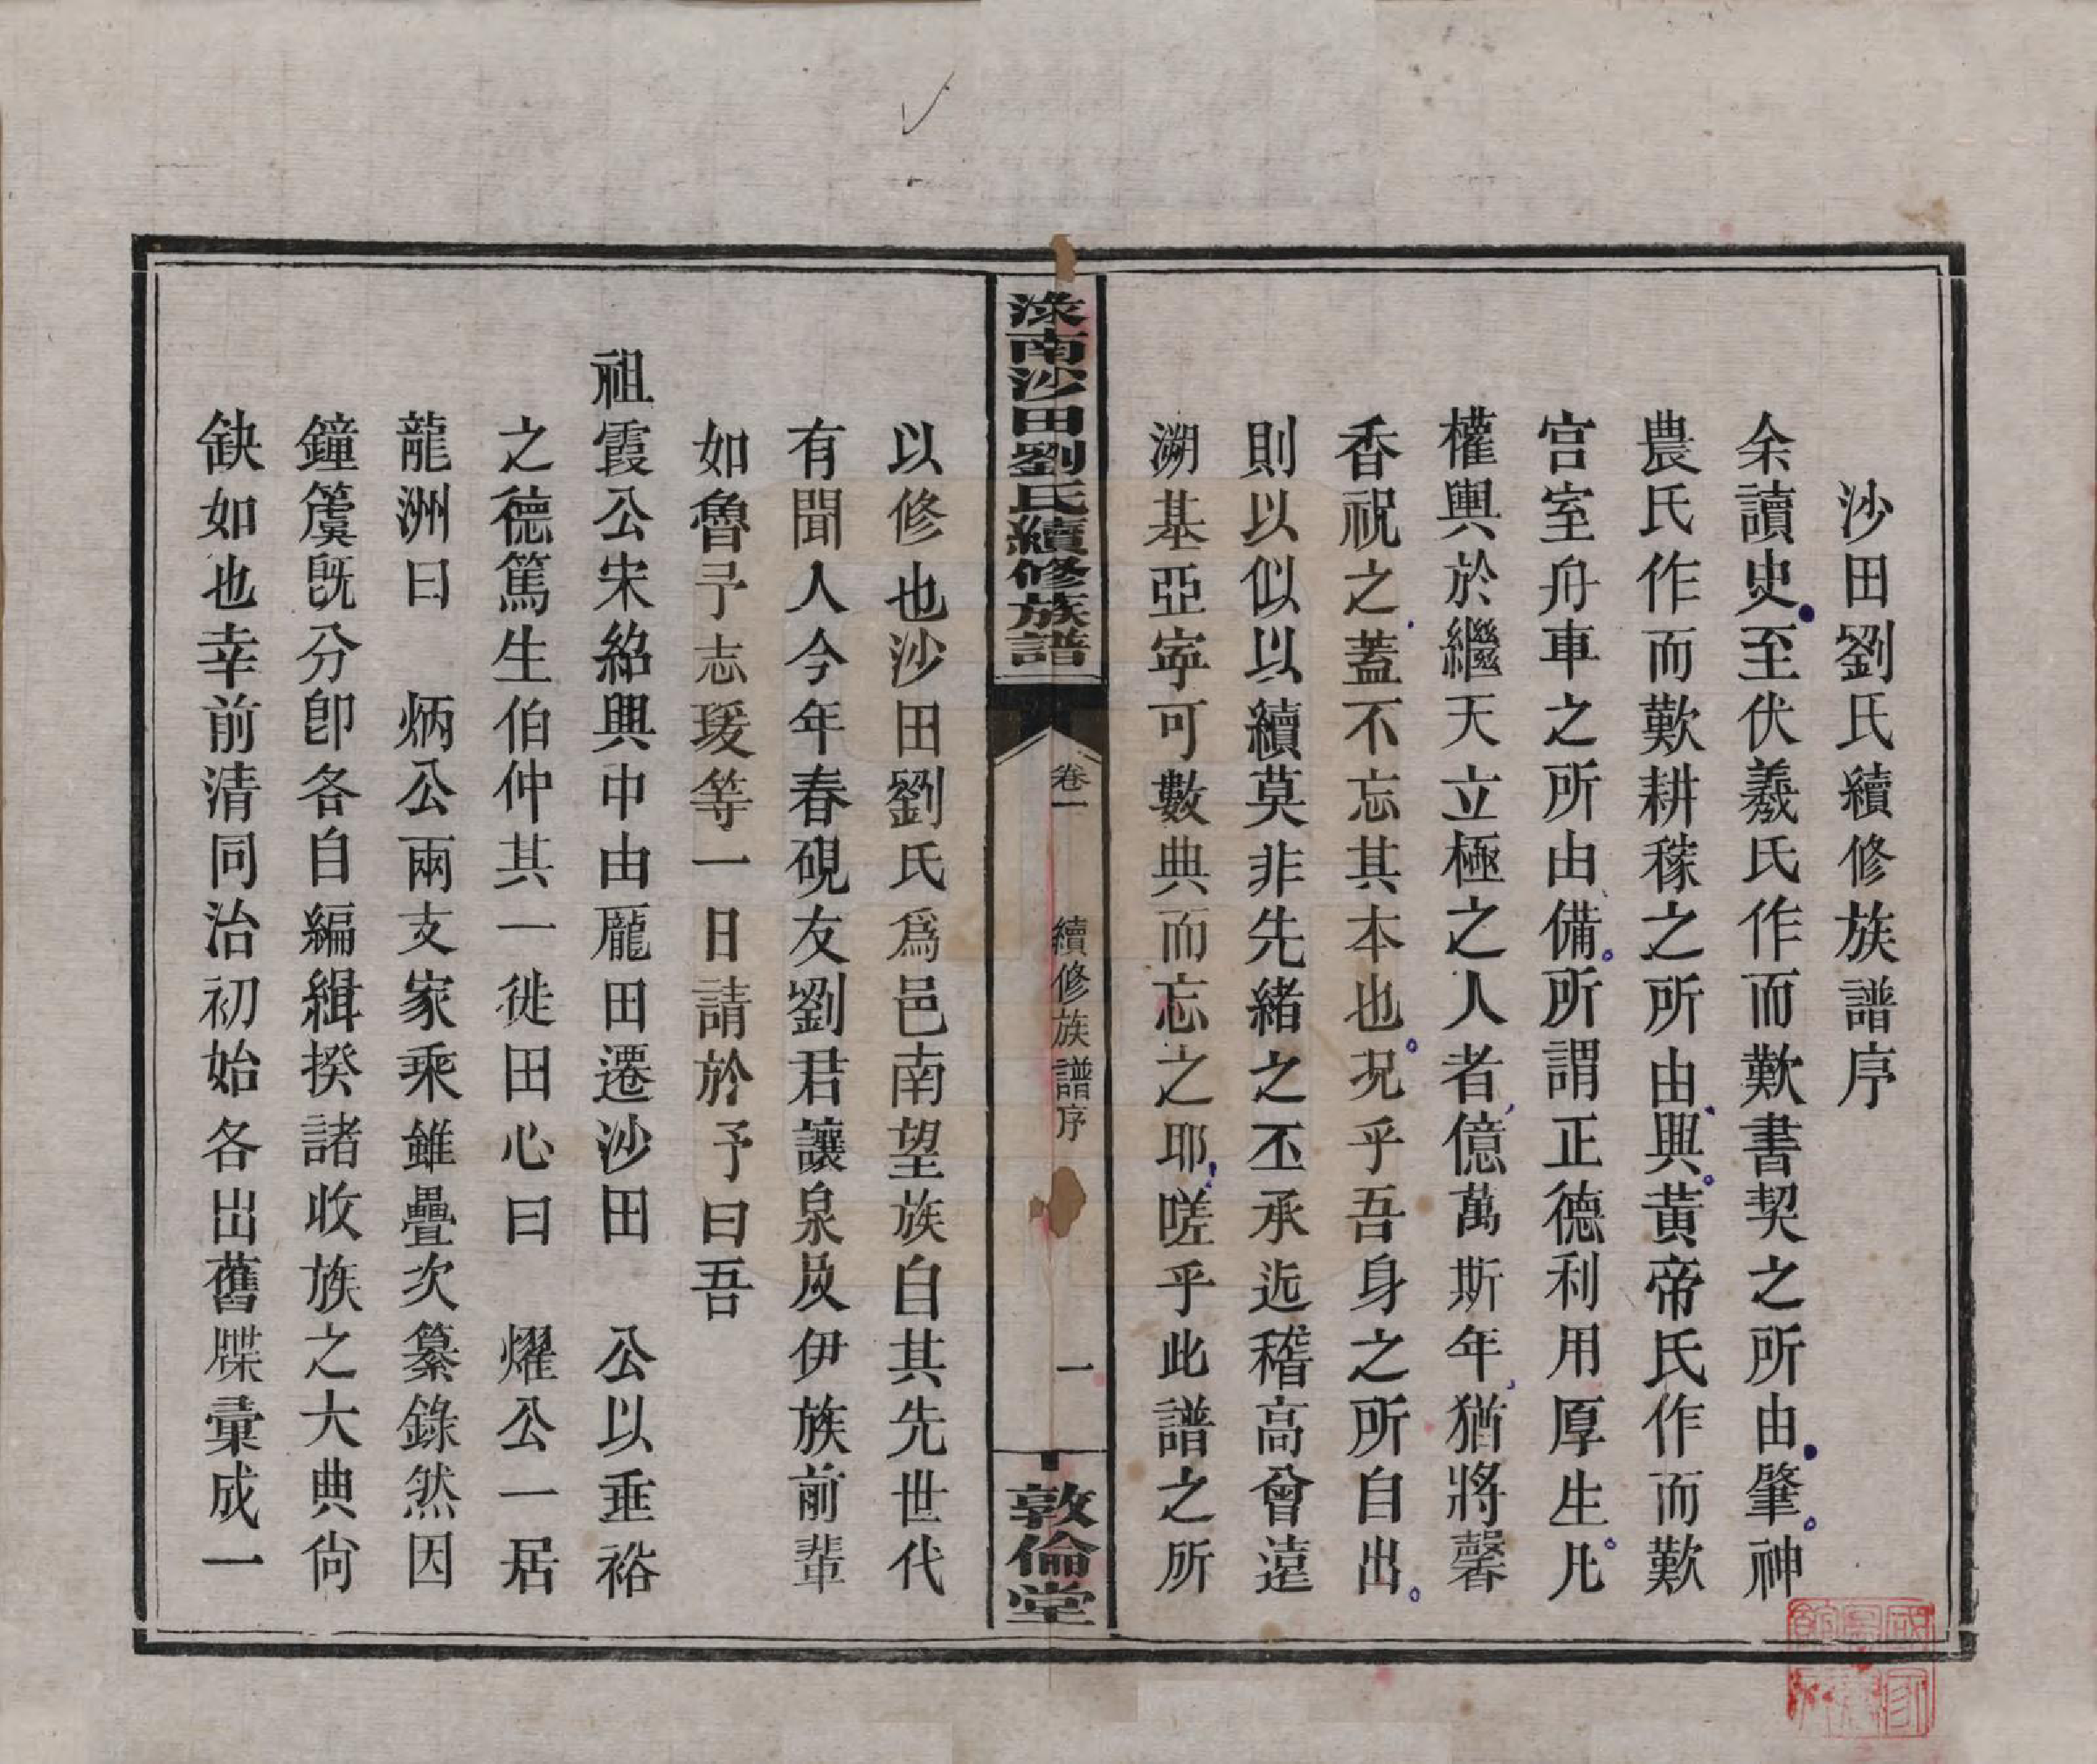 沙田劉氏續修族譜序
余讀史至伏羲氏作而歎書契之所由肇神
農氏作而歎耕稼之所由興黃帝氏作而歎
宮室舟車之所由備所謂正德利用厚生凡
權輿於繼天立極之人者億萬斯年猶將馨
香祝之蓋不忘其本也况乎吾身之所自出
則以似以續莫非先緒之丕承迄稽高曾遠
溯基亞寕可數典而忘之耶嗟乎此譜之所
渌南沙田劉氏續修族譜
卷一
續修族譜序
一
敦倫堂
以修也沙田劉氏爲邑南望族自其先世代
有聞人今年春硯友劉君讓泉及伊族前輩
如魯予志瑗等一日請於予曰吾
祖霞公宋紹興中由龎田遷沙田 公以垂裕
之德篤生伯仲其一徙田心曰 燿公一居
龍洲曰 炳公兩支家乘雖疊次纂錄然因
鐘簴旣分卽各自編緝揆諸收族之大典尙
缺如也幸前清同治初始各出舊牒彙成一